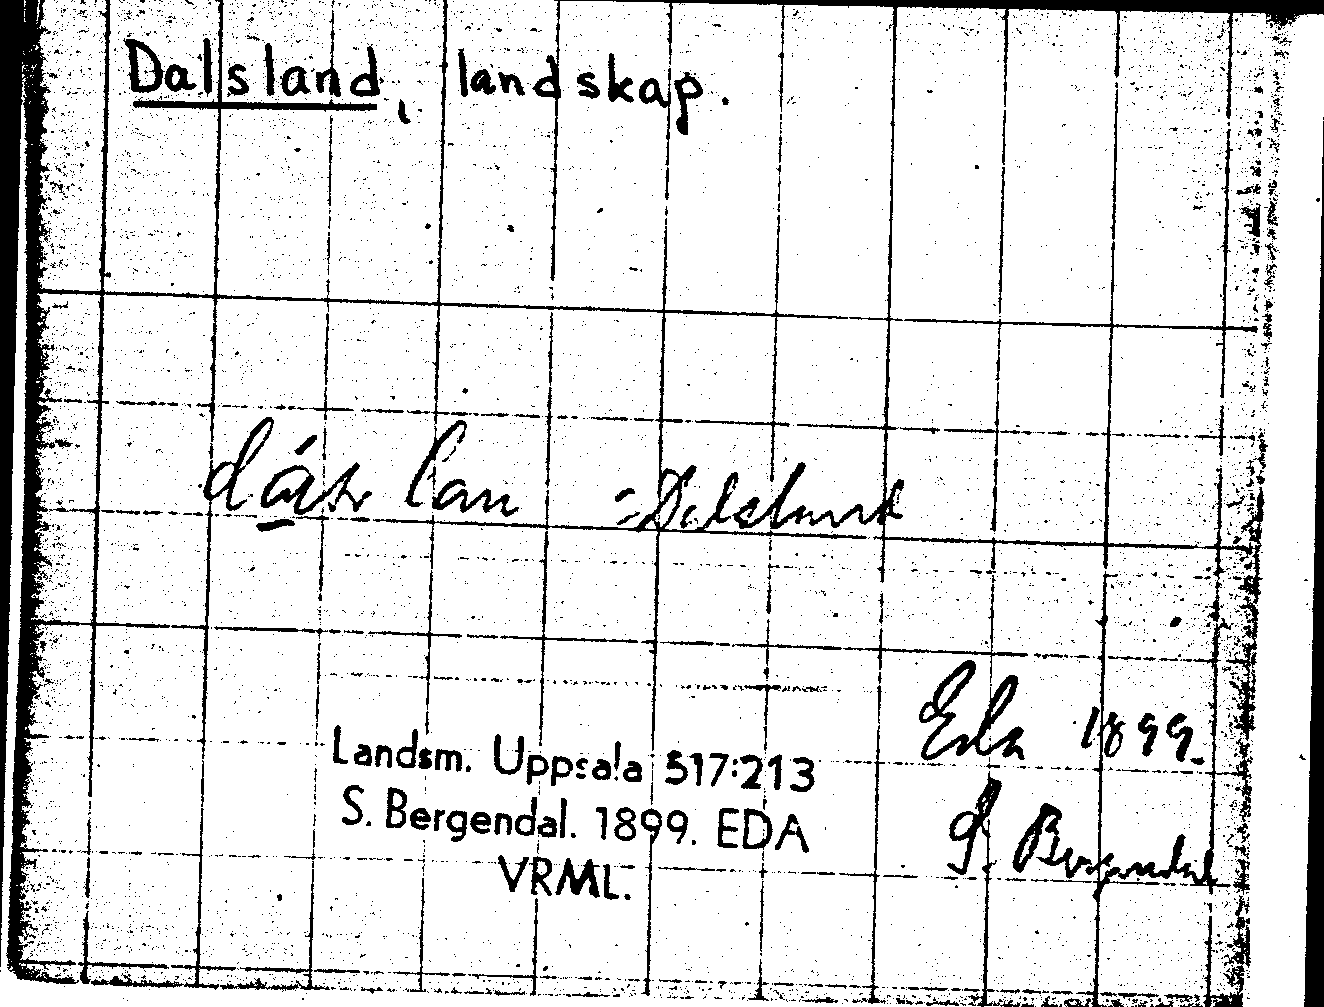 Dalsland, landskap.
lan = Dalsland
Eda 1899.
S. Bergendal
Landsm. Uppsala 517:213
S. Bergendal. 1899. EDA
VRML.